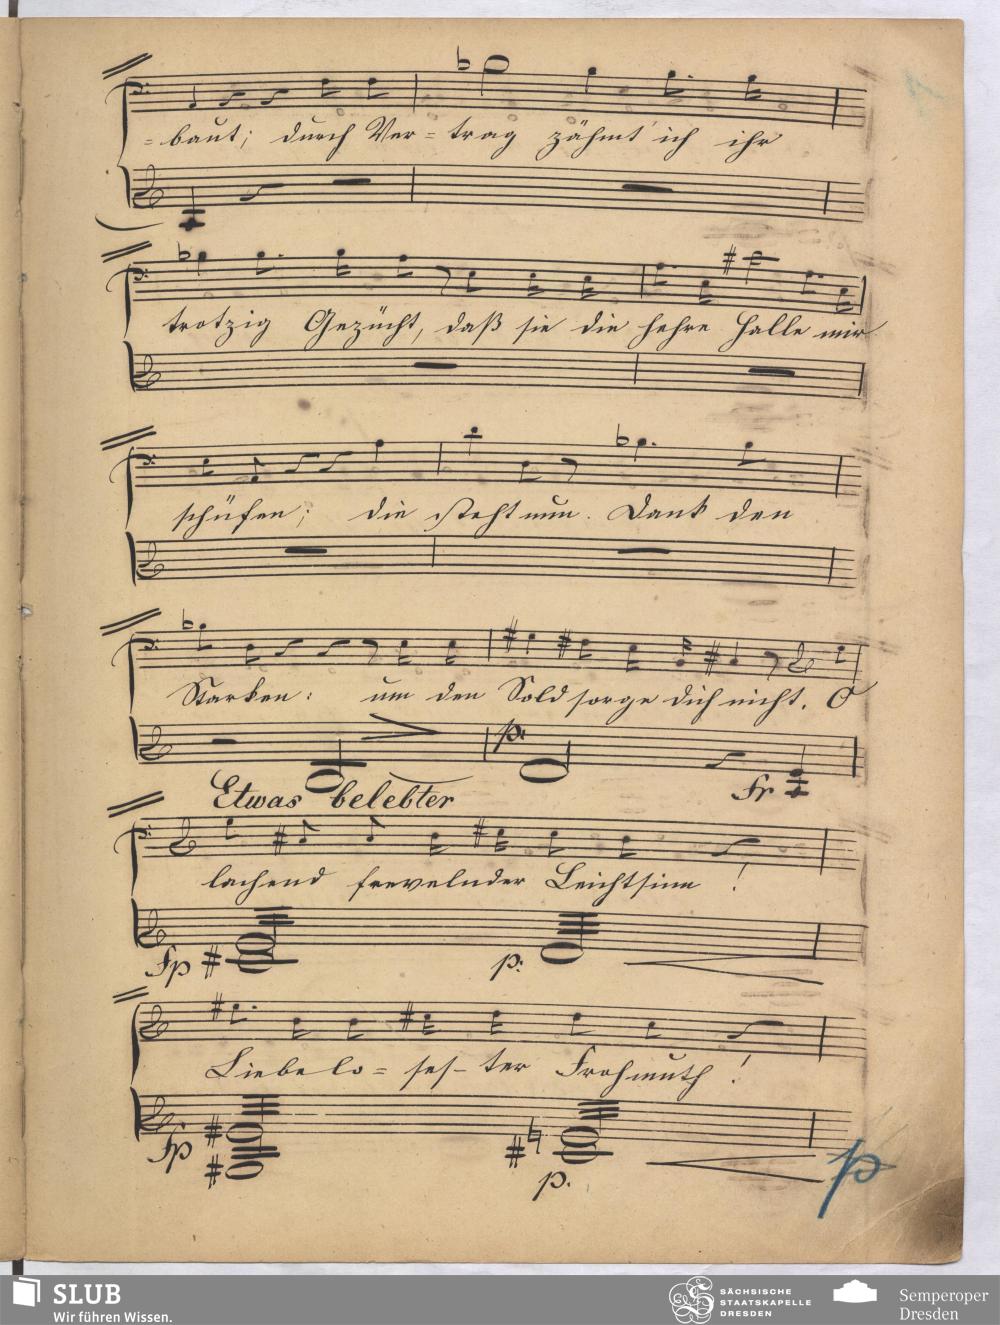 =baut; durch Ver=trag zähmt' ich ihr
trotzig Gezücht, daß sie die hehre Halle mir
schüfen; die steht nun. Dank den
Starken: um den Sold sorge dich nicht. O
p:
Etwas belebter
Fr
lachend frevelnder Leichtsinn!
Fp
p:
Liebelo=ses-ter Frohmuth!
Fp
p.
p
SLUB
Wir führen Wissen.
SÄCHSISCHE
STAATSKAPELLE
DRESDEN
Semperoper
Dresden